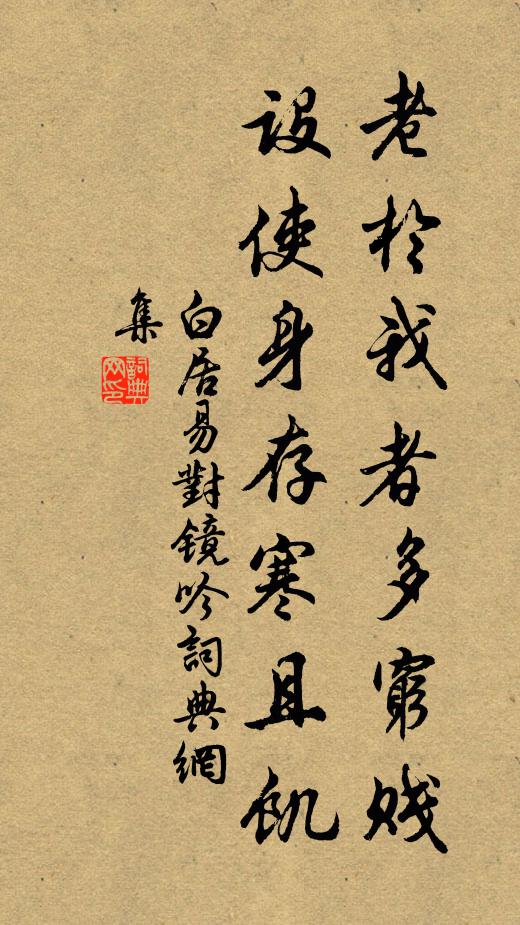 老於我者多窮賤
設使身存寒且飢
白居易對镜吟詞典網
集
詞典
网印